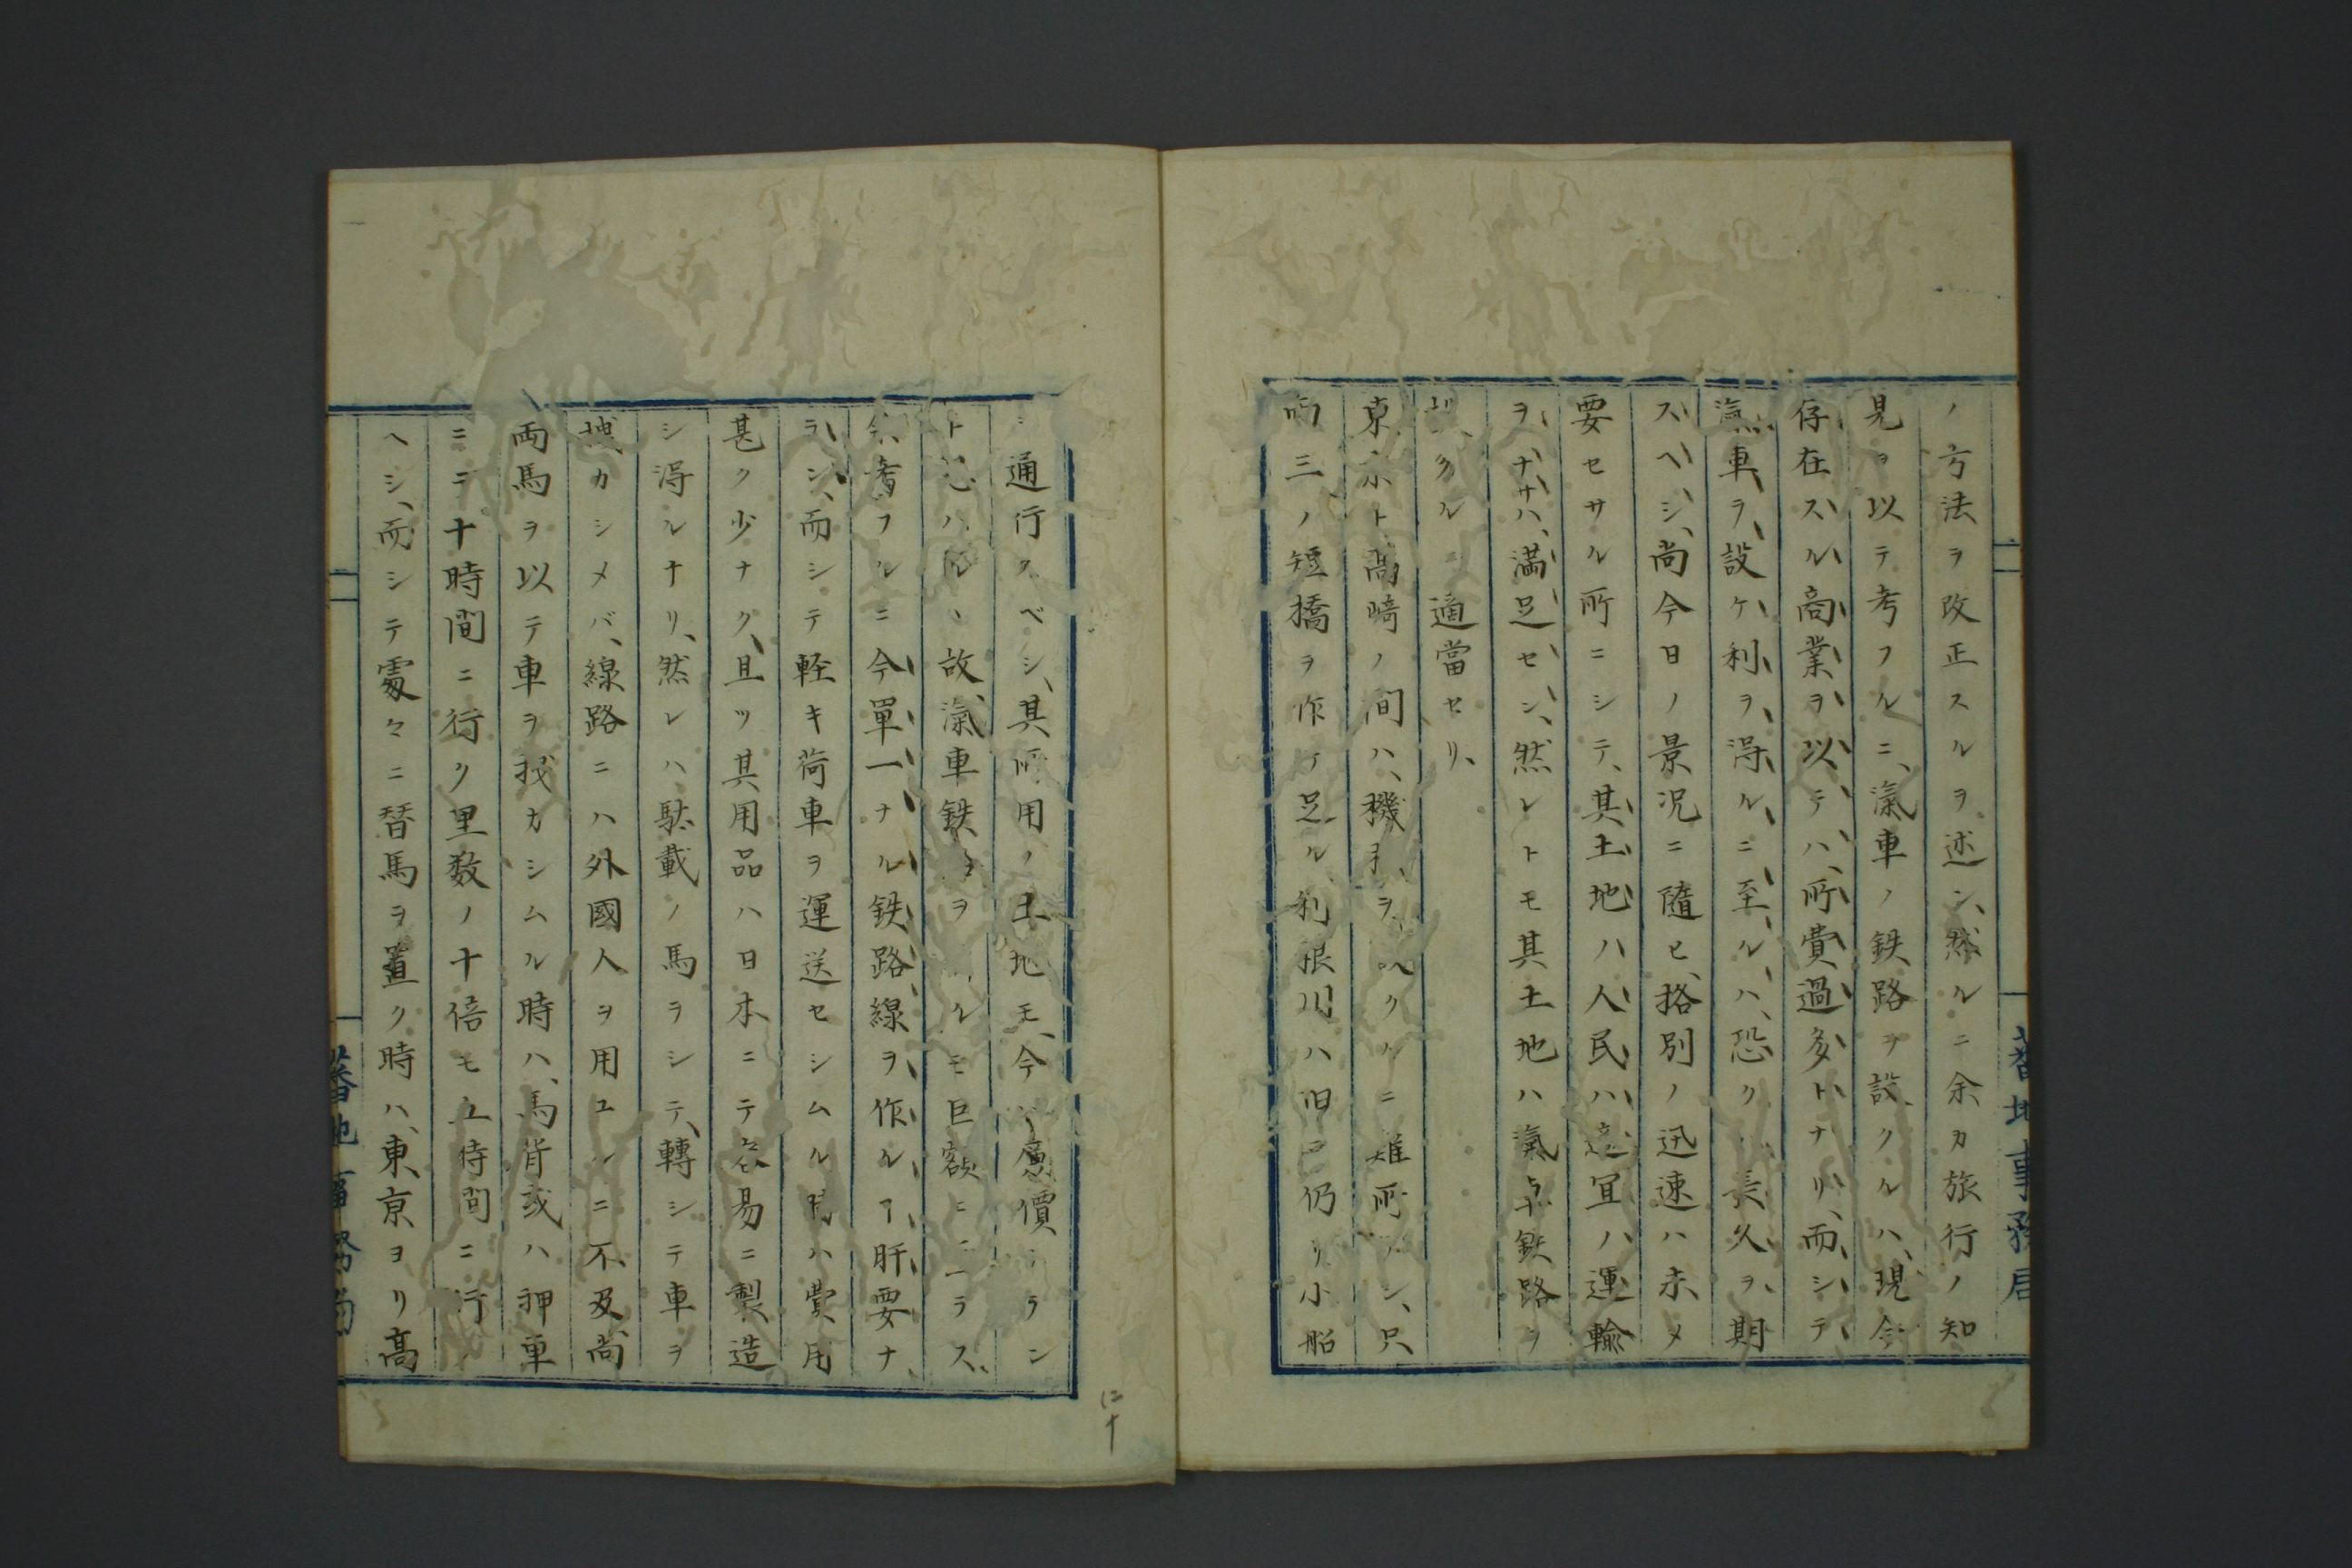 ノ方法ヲ改正スルヲ述ン、然ルニ余カ旅行ノ知
見ヲ以テ考フルニ、滊車ノ鉄路ヲ設クルハ、現今
存在スル商業ヲ以テハ、所費過多トナリ、而シテ
滊車ヲ設ケ利ヲ得ルニ至ルハ、恐ク長久ヲ期
スヘシ、尚今日ノ景况ニ隨ヒ、格別ノ迅速ハ未メ
要セサル所ニシテ、其土地ハ人民ハ冝ハ運輸
ヲナサハ、満足セン、然レトモ其土地ハ滊車鉄路ヲ
クルニ適當セリ、
東京ト高崎ノ間ハ、機ヲクルニ難所ナシ、只
両三ノ短橋ヲ作テ足ル利根川ハ旧ニ仍リ小船
通行クベシ、其所用ノ土地モ、今ハ價ナラン
ト故、滊車鉄ヲルモ巨額ニラス、
余考フルニ今單一ナル鉄路線ヲ作ルヿ、肝要ナ
ラン、而シテ軽キ荷車ヲ運送セシムル時ハ費用
甚ク少ナク、且ツ其用品ハ日本ニテ容易ニ製造
シ得ルナリ、然レハ、駄載ノ馬ヲシテ、轉シテ車ヲ
拽カシメバ、線路ニハ外國人ヲ用ユルニ不及、尚
両馬ヲ以テ車ヲ拽カシムル時ハ、馬背或ハ押車
ニテ十時間ニ行ク里数ノ十倍モ五時間ニ行
ヘシ、而シテ處々ニ替馬ヲ置ク時ハ、東京ヨリ高
蕃地事務局
蕃地事務局
二十